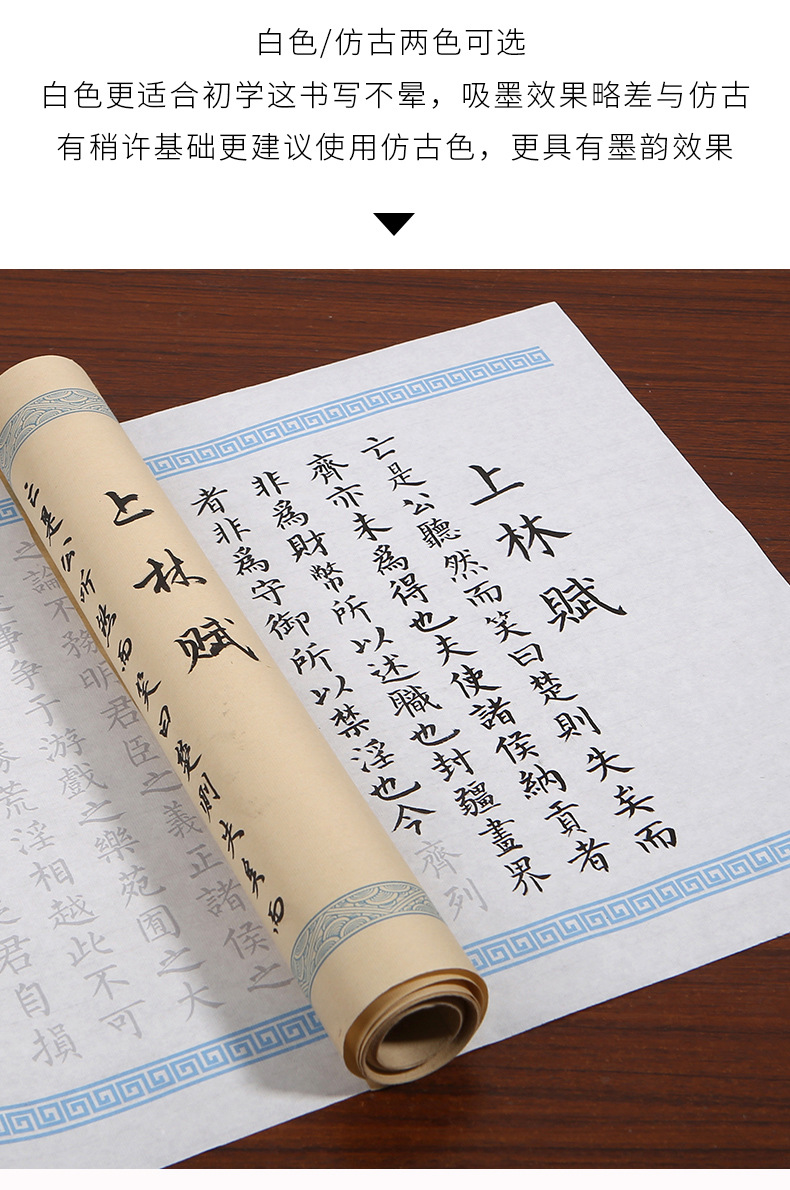 白色/仿古两色可选
白色更适合初学这书写不晕，吸墨效果略差与仿古
有稍许基础更建议使用仿古色，更具有墨韵效果
上林賦
亡是公聽然而笑曰楚則失矣而
齊亦未為得也夫使諸侯納貢者
非為財幣所以述職也封疆畫界
者非為守御所以禁淫也今齊列
上林赋
亡是公听然而笑曰楚则失矣而
之論不務明君臣之義正諸侯之
事争于游戲之樂苑囿之大
荒淫相越此不可
君自損